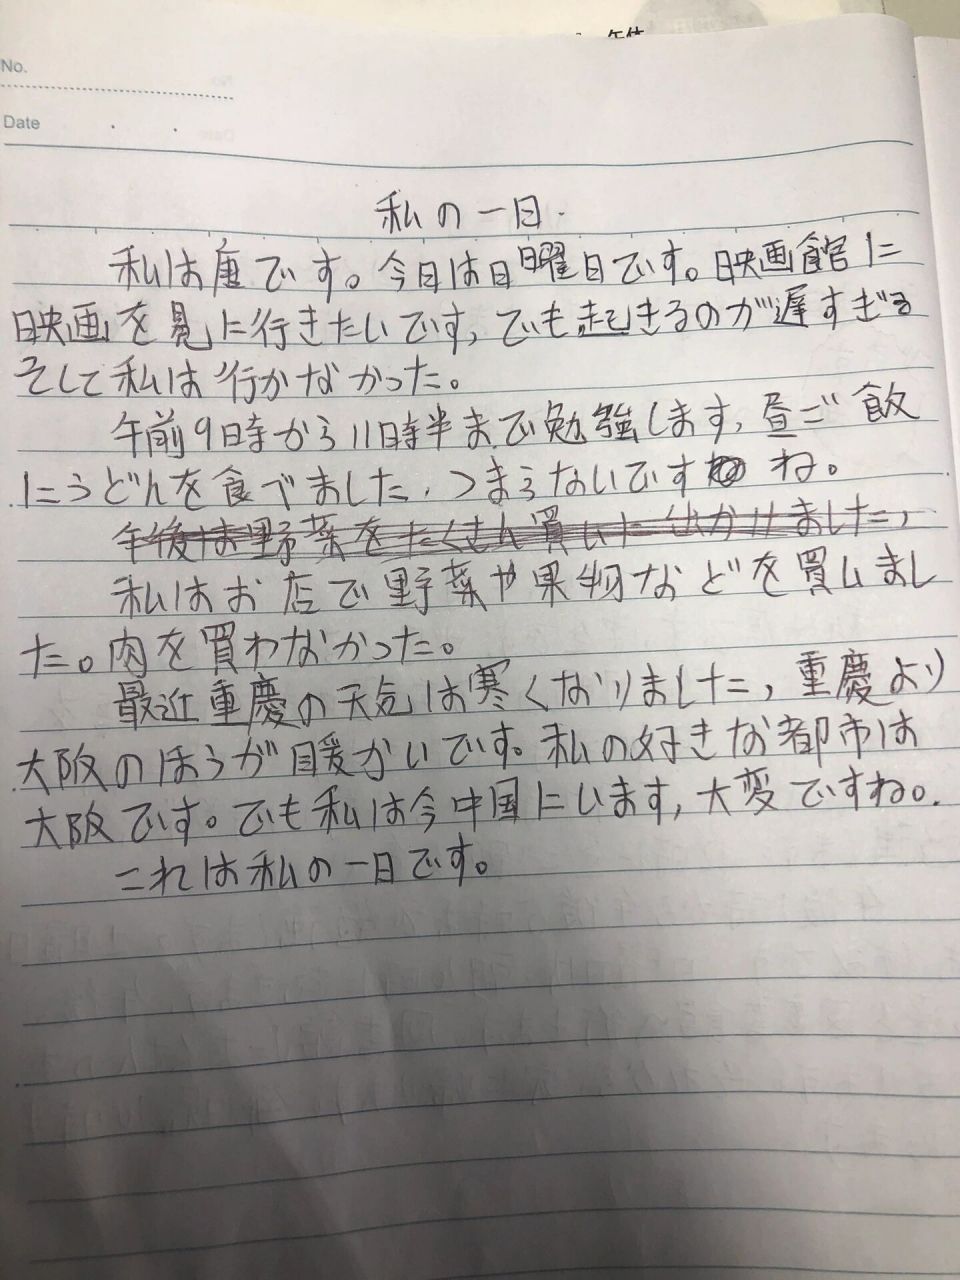 No.
Date
私の一日.
私は唐です。今日は日曜日です。映画館に
映画を見に行きたいです, でも起きるのが遅すぎる
そして私は行かなかった。
午前9時から11時半まで勉強します, 昼ご飯
にうどんを食べました, つまらないです ね。
午後は野菜をたくさん買いに出かけました,
私はお店で野菜や果物などを買いまし
た。肉を買わなかった。
最近重慶の天気は寒くなりました, 重慶より
大阪のほうが暖かいです。私の好きな都市は
大阪です。でも私は今中国にいます, 大変ですね。
これは私の一日です。